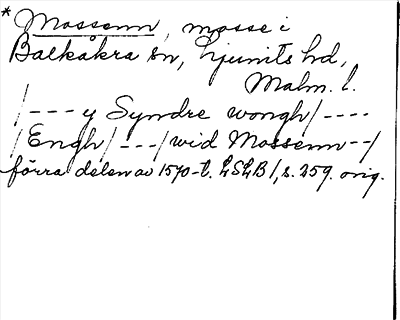 * Mossenn, mosse i
Balkåkra sn, Ljunits hd,
Malm. l.
/--- y Syndre wongh/----
/Engh/---/wid Mossenn--/
förra delen av 1570-t. LSLB 1, s. 259. orig.